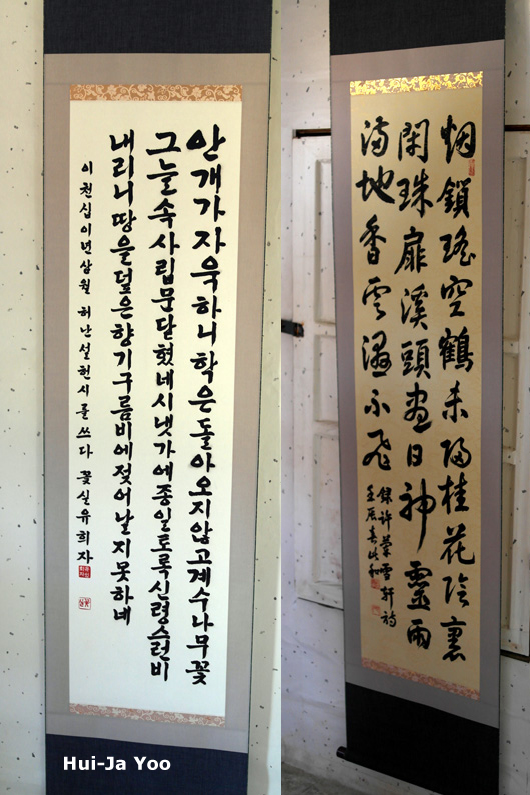 안개가자욱하니학은돌아오지않고계수나무꽃
그늘속사립문닫혔네시냇가에종일토록신령스런비
내리니땅을덮은향기구름비에젖어날지못하네
이천십이년상월 허난설헌시를쓰다 꽃실유희자
烟鎖瑤空鶴未歸桂花陰裏
閉珠扉溪頭盡日神靈雨
滿地香雲濕不飛
錄許蘭雪軒詩
壬辰春
Hui-Ja Yoo